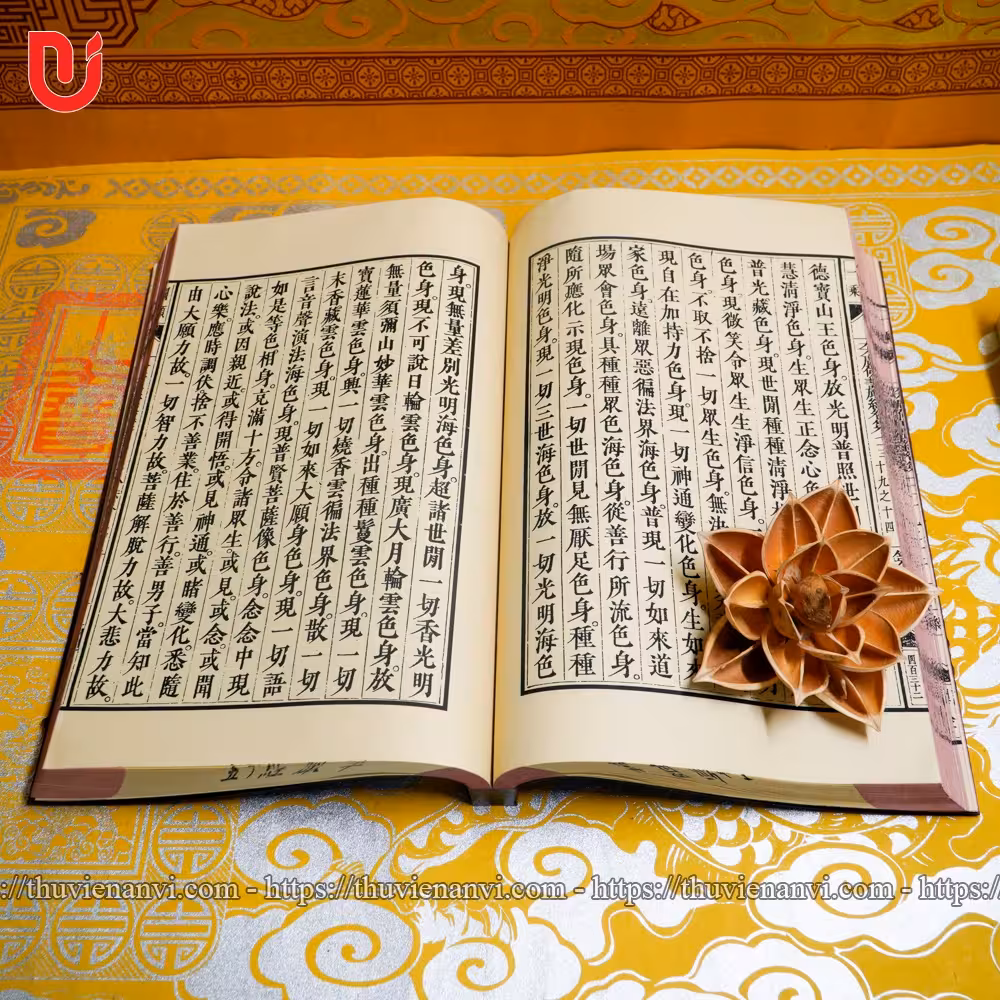 三十九之十四
四百三十二
德寶山王色身。放光明普照世
慧清淨色身。生眾生正念心色
普光藏色身。現世間種種清淨
色身。現微笑令眾生生淨信色身。
色身。不取不捨一切眾生色身。無決
現自在加持力色身。現一切神通變化色身。生如
家色身。遠離眾惡徧法界海色身。普現一切如來道
場眾會色身。具種種眾色海色身。從善行所流色身。
隨所應化示現色身。一切世間見無厭足色身。種種
淨光明色身。現一切三世海色身。放一切光明海色
身。現無量差別光明海色身。超諸世間一切香光明
色身。現不可說日輪雲色身。現廣大月輪雲色身。放
無量須彌山妙華雲色身。出種種鬘雲色身。現一切
寶蓮華雲色身。興一切燒香雲徧法界色身。散一切
末香藏雲色身。現一切如來大願身色身。現一切語
言音聲演法海色身。現普賢菩薩像色身。念念中現
如是等色相身。充滿十方。令諸眾生或見。或念。或聞
說法。或因親近。或得開悟。或見神通。或睹變化。悉隨
心樂。應時調伏。捨不善業。住於善行。善男子。當知此
由大願力故。一切智力故。菩薩解脫力故。大悲力故。
://thuvienanvi.com - https://thuvienanvi.com - https://thuvienanvi.com - https://